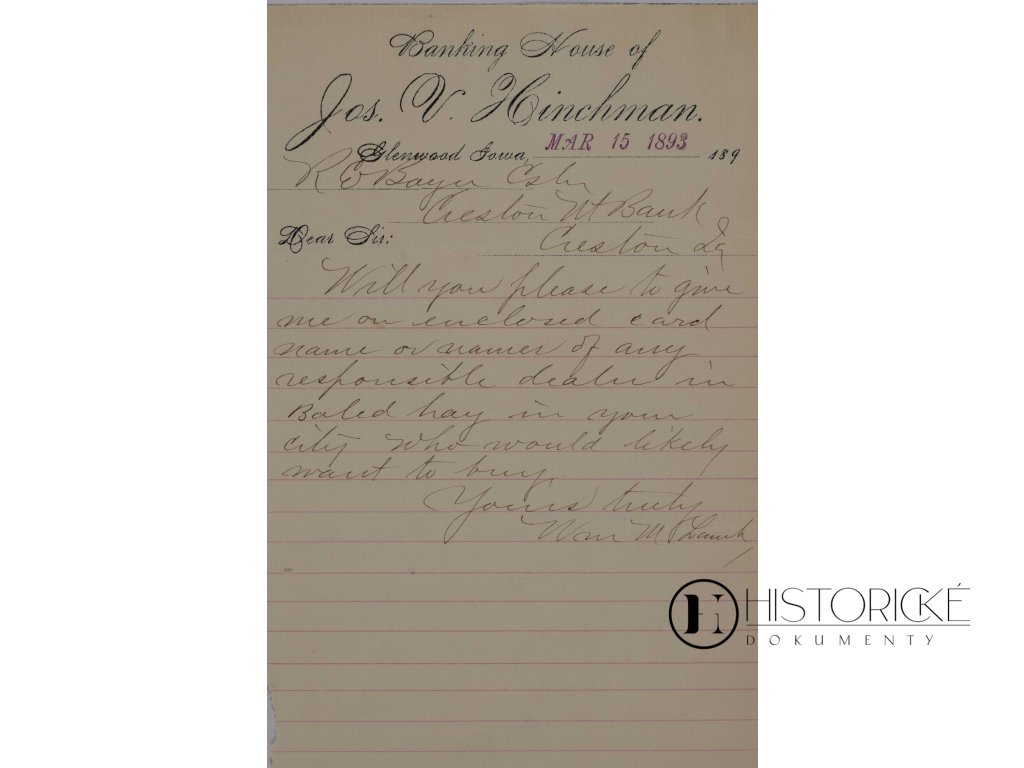 Banking House of
Jos. V. Hinchman.
Glenwood Iowa, MAR 15 1893 189
R E Cshr
Creston Nt Bank
Dear Sir: Creston Ia
Will you please to give
me on enclosed card
name or names of any
responsible dealer in
Baled hay in your
city who would likely
want to buy.
Yours truly
Wm M
HISTORICKÉ
DOKUMENTY